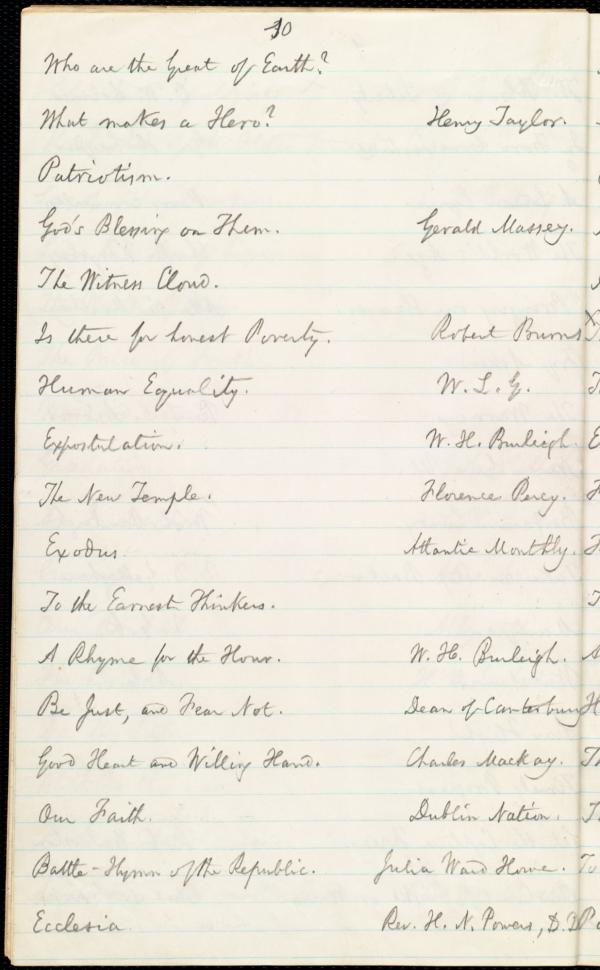 30
Who are the Great of Earth?
What makes a Hero? Henry Taylor.
Patriotism.
God's Blessing on Them. Gerald Massey.
The Witness Cloud.
Is there for honest Poverty. Robert Burns
Human Equality. W. L. G.
Expostulation. W. H. Burleigh.
The New Temple. Florence Percy.
Exodus. Atlantic Monthly.
To the Earnest Thinkers.
A Rhyme for the Hour. W. H. Burleigh.
Be Just, and Fear Not. Dean of Canterbury
Good Heart and Willing Hand. Charles Mackay.
Our Faith. Dublin Nation.
Battle-Hymn of the Republic. Julia Ward Howe.
Ecclesia Rev. H. N. Powers, D.D